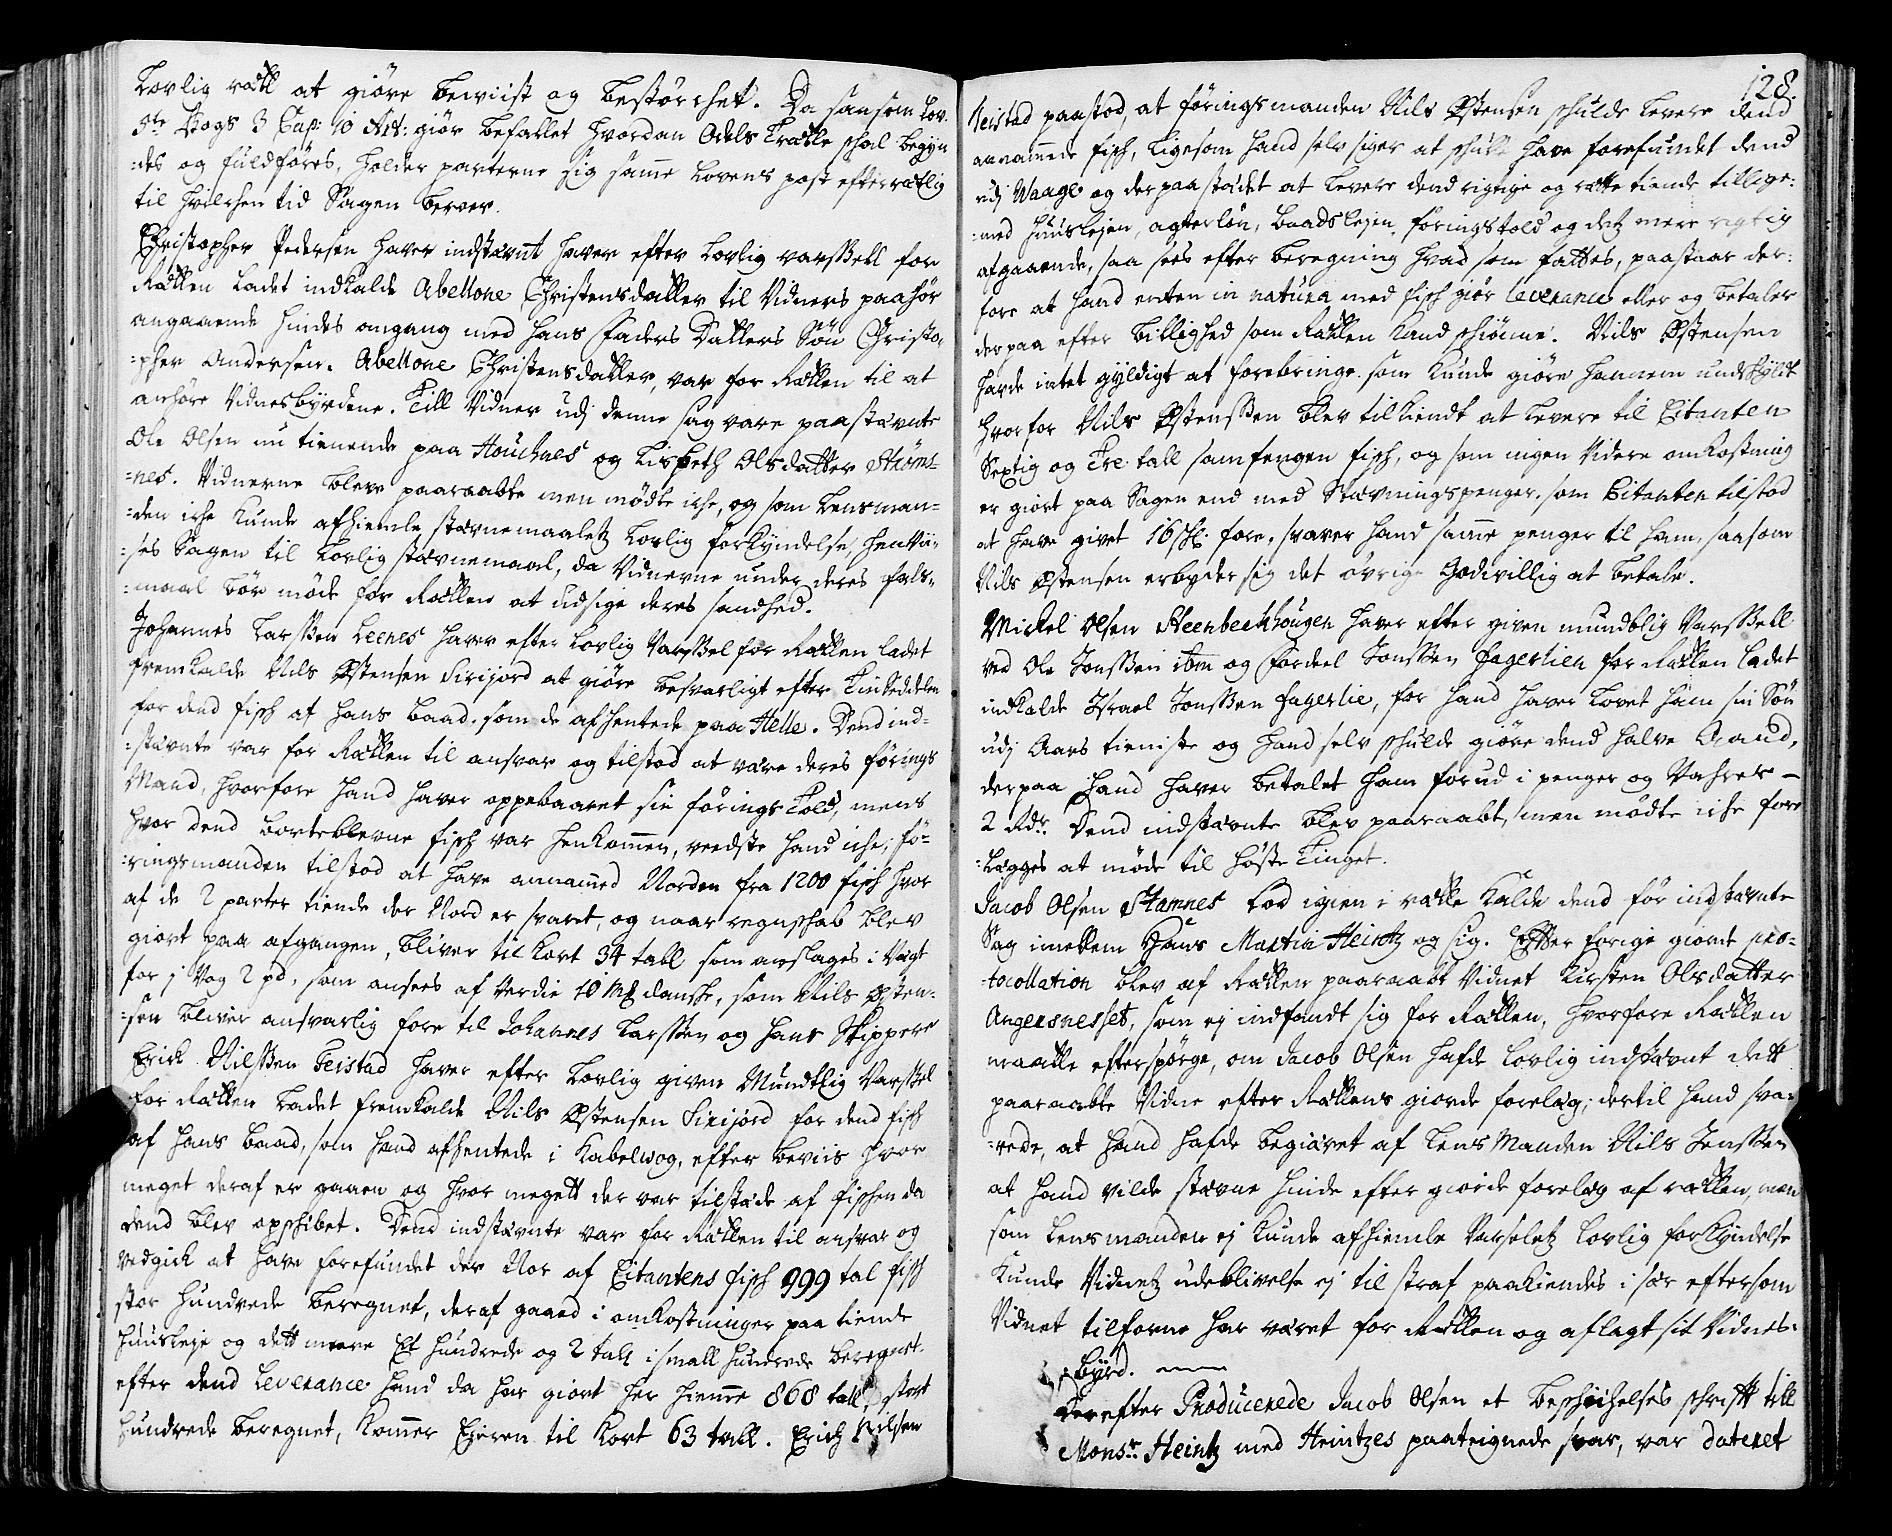 Lovlig rætt at giöre beviist og bestörchet. Da saasom Lov.
5te Bogs 3 Cap: 10 Art: giör befallet hvordan Odels Trætte schal begyn
:des og fuldföres, holder parterne sig samme Lovens post efterrætlig
til hvilchen tid Sagen berver.
Christopher Pedersen haver indstævnt haver efter Lovlig varssell for
Rætten ladet indkalde Abellone Christensdatter til Vidners paahör
angaaende hindes omgang med hans Faders Datters Sön Christo,
:pher Andersen. Abellone Christensdatter, var for Rætten til at
anhöre Vidnesbyrdene. Till Vidner udj denne sag vare paastævnte
Ole Olsen nu tienende paa Houchnes og Lisbeth Olsdatter Störnt-
:nes. Vidnerne bleve paaraabte men mödte iche, og som Lensman-
:den iche kunde afhiemle stævnemaaletz Lovlig forkyndelse, henvii-
:ses Sagen til Lovlig stævnemaal, da Vidnerne under deres fals-
:maal bör möde for Rætten at udsige deres sandhed.
Johannes Larssen Leenes haver efter Lovlig Varssel for Rætten ladet
fremkalde Nils Østensen Sirijord at giöre besvarligt efter Tinseddelen
for dend fisch af hans baad, som de afhentede paa Helle. Dend ind-
:stævnte var for Rætten til ansvar og tilstod at være deres förings
Mand, hvorfore hand haver oppebaaret sin förings Told, mens
hvor dend borteblevne fisch var henkommen, veedste hand iche; fö-
:ringsmanden tilstod at have annammed Norden fra 1200 fisch hvor
af de 2 parter tiende der Nord er svaret, og naar regnschab blev
giort paa afgangen, bliver til kort 34 tall som anslages i Vægt
for j Vog 2 pd, som ansees af Verdie 10 mk danske, som Nils Østen-
:sen bliver ansvarlig fore til Johannes Larssen og hans Skippere
Erich Nilssen Feistad haver efter Lovlig given Mundtlig Varssel
for Rætten ladet fremkalde Nils Østensen Sirijord for dend fisch
af hans baad, som hand afhentede i Kabelvog, efter beviis hvor
meget deraf er gaaen og hvor megett der var tilstæde af fischen da
dend blev opschibet. Dend indstævnte var for Rætten til ansvar og
vedgick at have forefundet der Nor af Citantens fisch 999 tal fisch
stor hundrede beregnet, deraf gaaed i omkostninger paa tiende
huusleje og dett meere Et hundrede og 2 tall i small hundrede beregnet.
efter dend Leverance hand da har giort her hiemme 868 tall, stort
hundrede beregnet, kommer Eieren til kort 63 tall. Erich Nilsen
128.
Feistad paastod, at föringsmanden Nils Østensen schulde levere dend
anammede fisch, ligesom hand selv siger at schulle have forefundet dend
udj Waage og der paa stædet at levere dend rigtige og rette tiende tillige:
:med huuslejen, agterløn, baadslejen, föringstold og detz mere rigtig
afgaaende, saa sees efter beregning hvad som fattes, paastaar der:
fore at hand enten in natura med fisch giör Leverance eller og betaler
derpaa efter billighed som Rætten kand schiönne. Nils Østensen
hafde intet gyldigt at forebringe som kunde giöre hannem undskyldt
hvorfor Nils Østenssen blev tilkiendt at levere til Citanten
Sextig og Tre tall samfengen fisch, og som ingen Videre omkostning
er giort paa Sagen end med Stævningspenger, som Citanten tilstod
at have givet 16 sch. fore, svarer hand samme penger til ham, saasom
Nils Østensen erbyder sig det övrige Godvillig at betale.
Mickel Olsen Steenbechhougen haver efter given mundtlig Varssell
ved Ole Jonssen ibm og Fordeel Jonssen Fagerlien for Rætten ladet
indkalde Israel Jonssen Fagerlie, for hand haver lovet ham sin Sön
udj Aars tieniste og hand selv schulde giöre dend halve Aand,
derpaa hand haver betalet ham forud i penger og Vahrer -
2 Rdr. Dend indstævnte blev paaraabt, men mödte iche fore
:lægges at möde til höste Tinget.
Jacob Olsen Stamnes lod igien i rætte kalde dend för indstævnte
Sag imellem Hans Martin Heintz og sig. Efter forige giorde pro-
:tocollation blev af Rætten paaraabt Vidnet Kirsten Olsdatter
Angersnesset, som ej indfandt sig for Rætten, hvorfore Rætten
maatte efterspörge, om Jacob Olsen hafde Lovlig indstævnt dett
paaraabte Vidne efter Rættens giorde forelæg; dertil hand sva-
:rede, at hand hafde begiæret af Lens Manden Nils Jenssen
at hand vilde stævne hinde efter giorde forelæg af rætten, men
som Lensmanden ej kunde afhiemle Varseletz Lovlig forkyndelse
kunde Vidnetz udeblivelse ej til straf paakiendes i sær eftersom
Vidnet tilforne har været for Rætten og aflagt sit Vidnes-
:byrd.
Derefter Producerede Jacob Olsen et beschichelses schrift till
Monsr. Heintz med Heintzes paateignede svar, var dateret